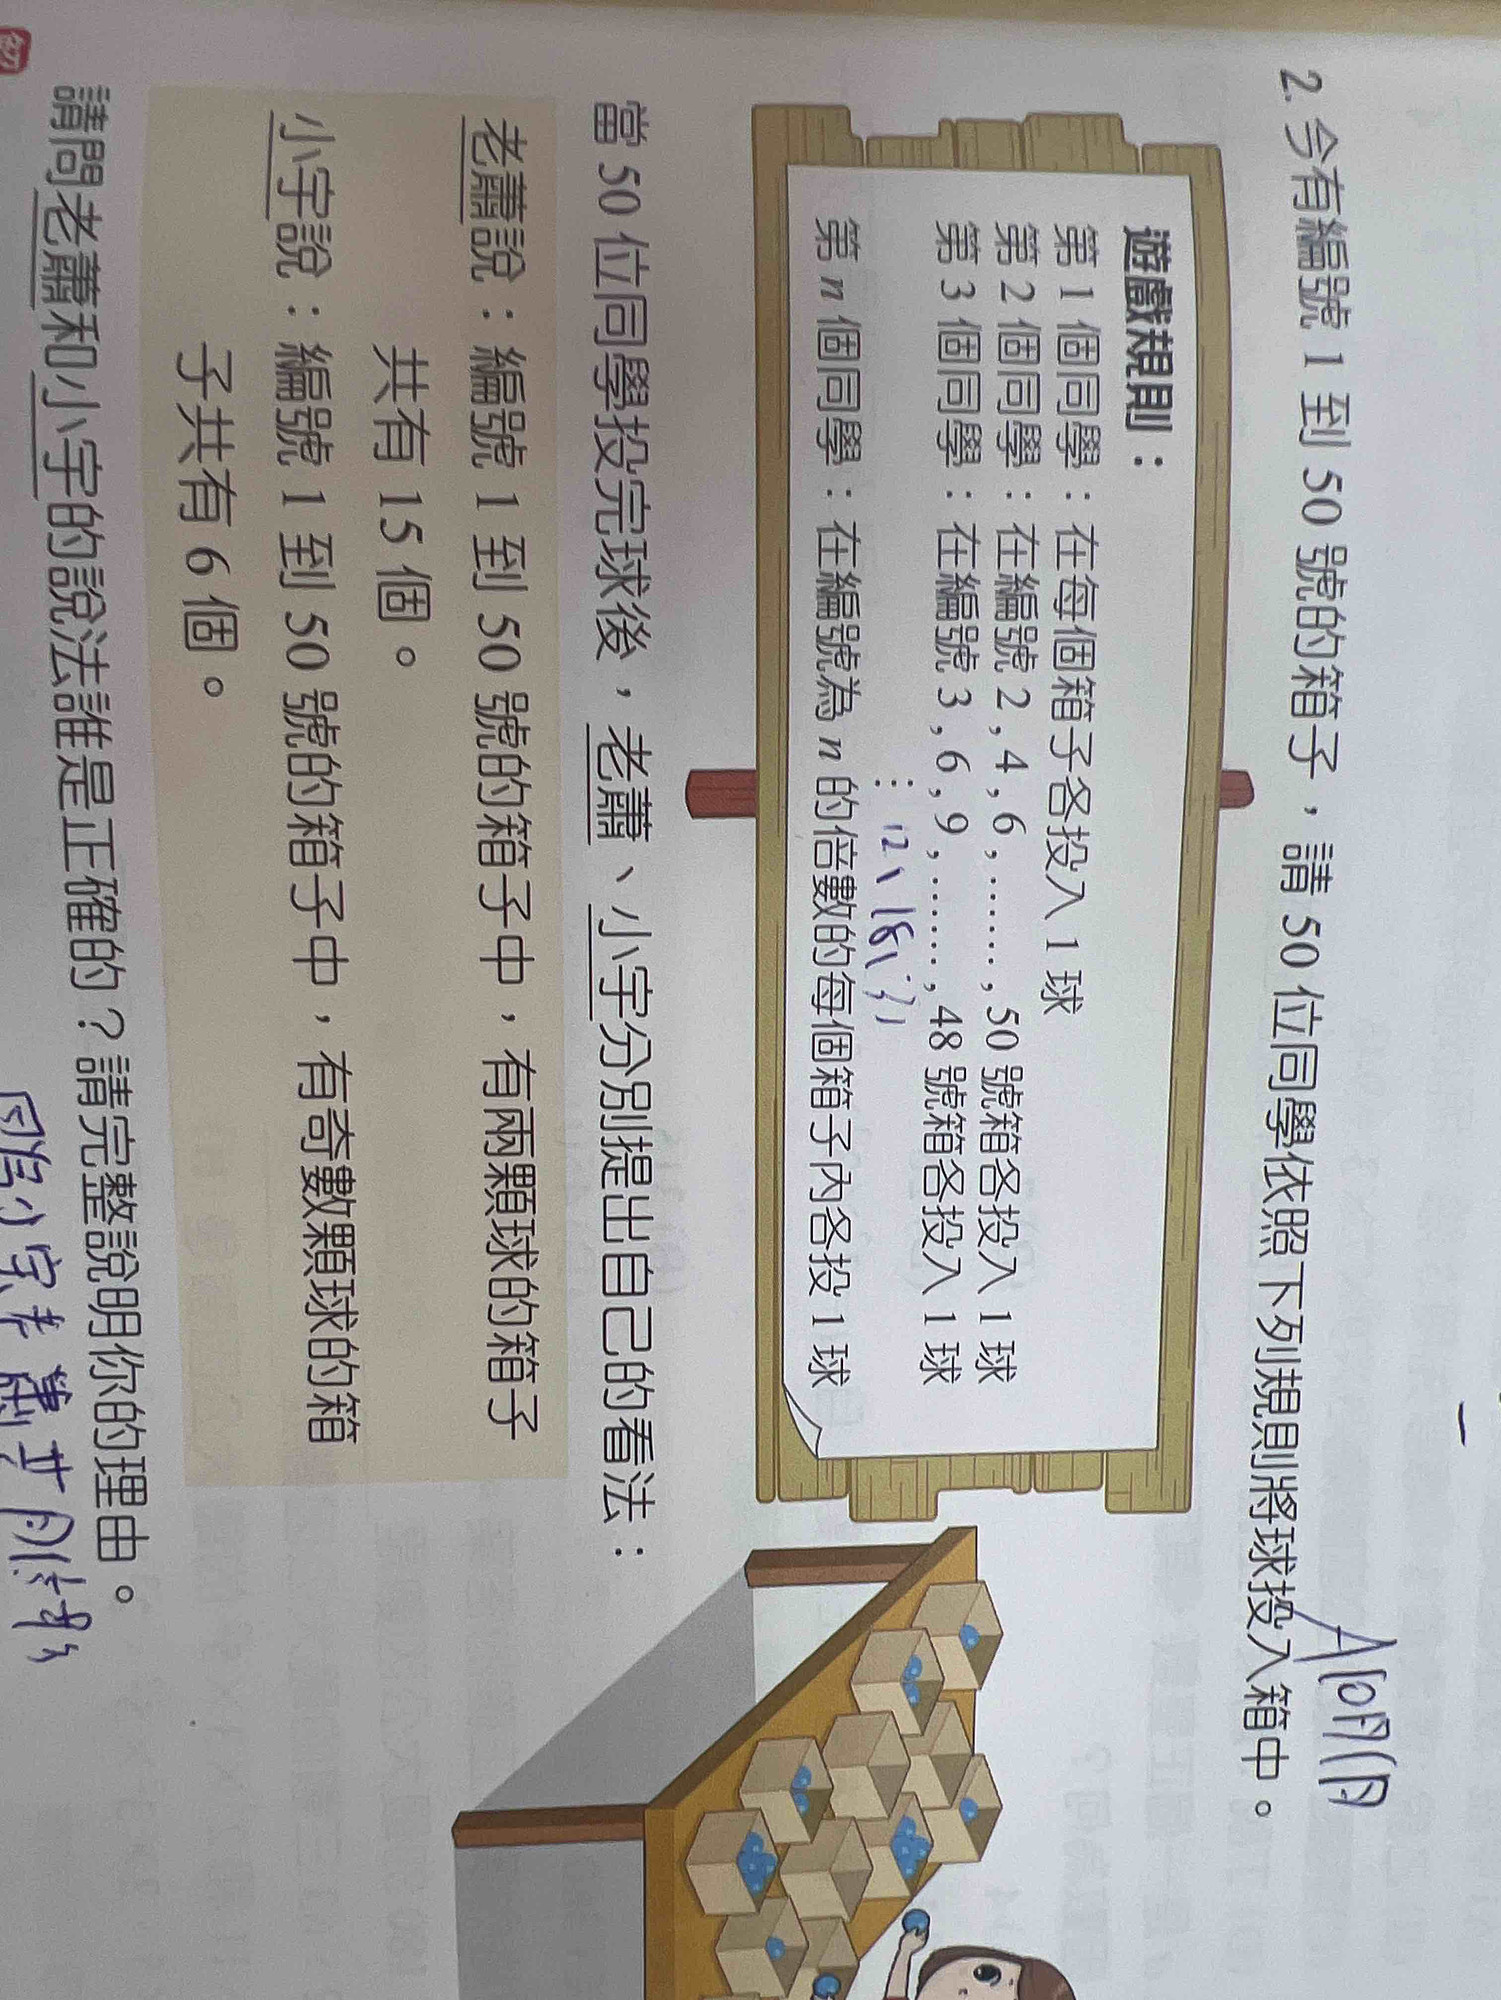 2. 今有編號 1 到 50 號的箱子，請 50 位同學依照下列規則將球投入箱中。
遊戲規則：
第 1 個同學：在每個箱子各投入 1 球
第 2 個同學：在編號 2 , 4 , 6 , …… , 50 號箱各投入 1 球
第 3 個同學：在編號 3 , 6 , 9 , …… , 48 號箱各投入 1 球
⋮
第 n 個同學：在編號為 n 的倍數的每個箱子內各投 1 球
當 50 位同學投完球後，老蕭、小宇分別提出自己的看法：
老蕭說：編號 1 到 50 號的箱子中，有兩顆球的箱子
共有 15 個。
小宇說：編號 1 到 50 號的箱子中，有奇數顆球的箱
子共有 6 個。
請問老蕭和小宇的說法誰是正確的？請完整說明你的理由。